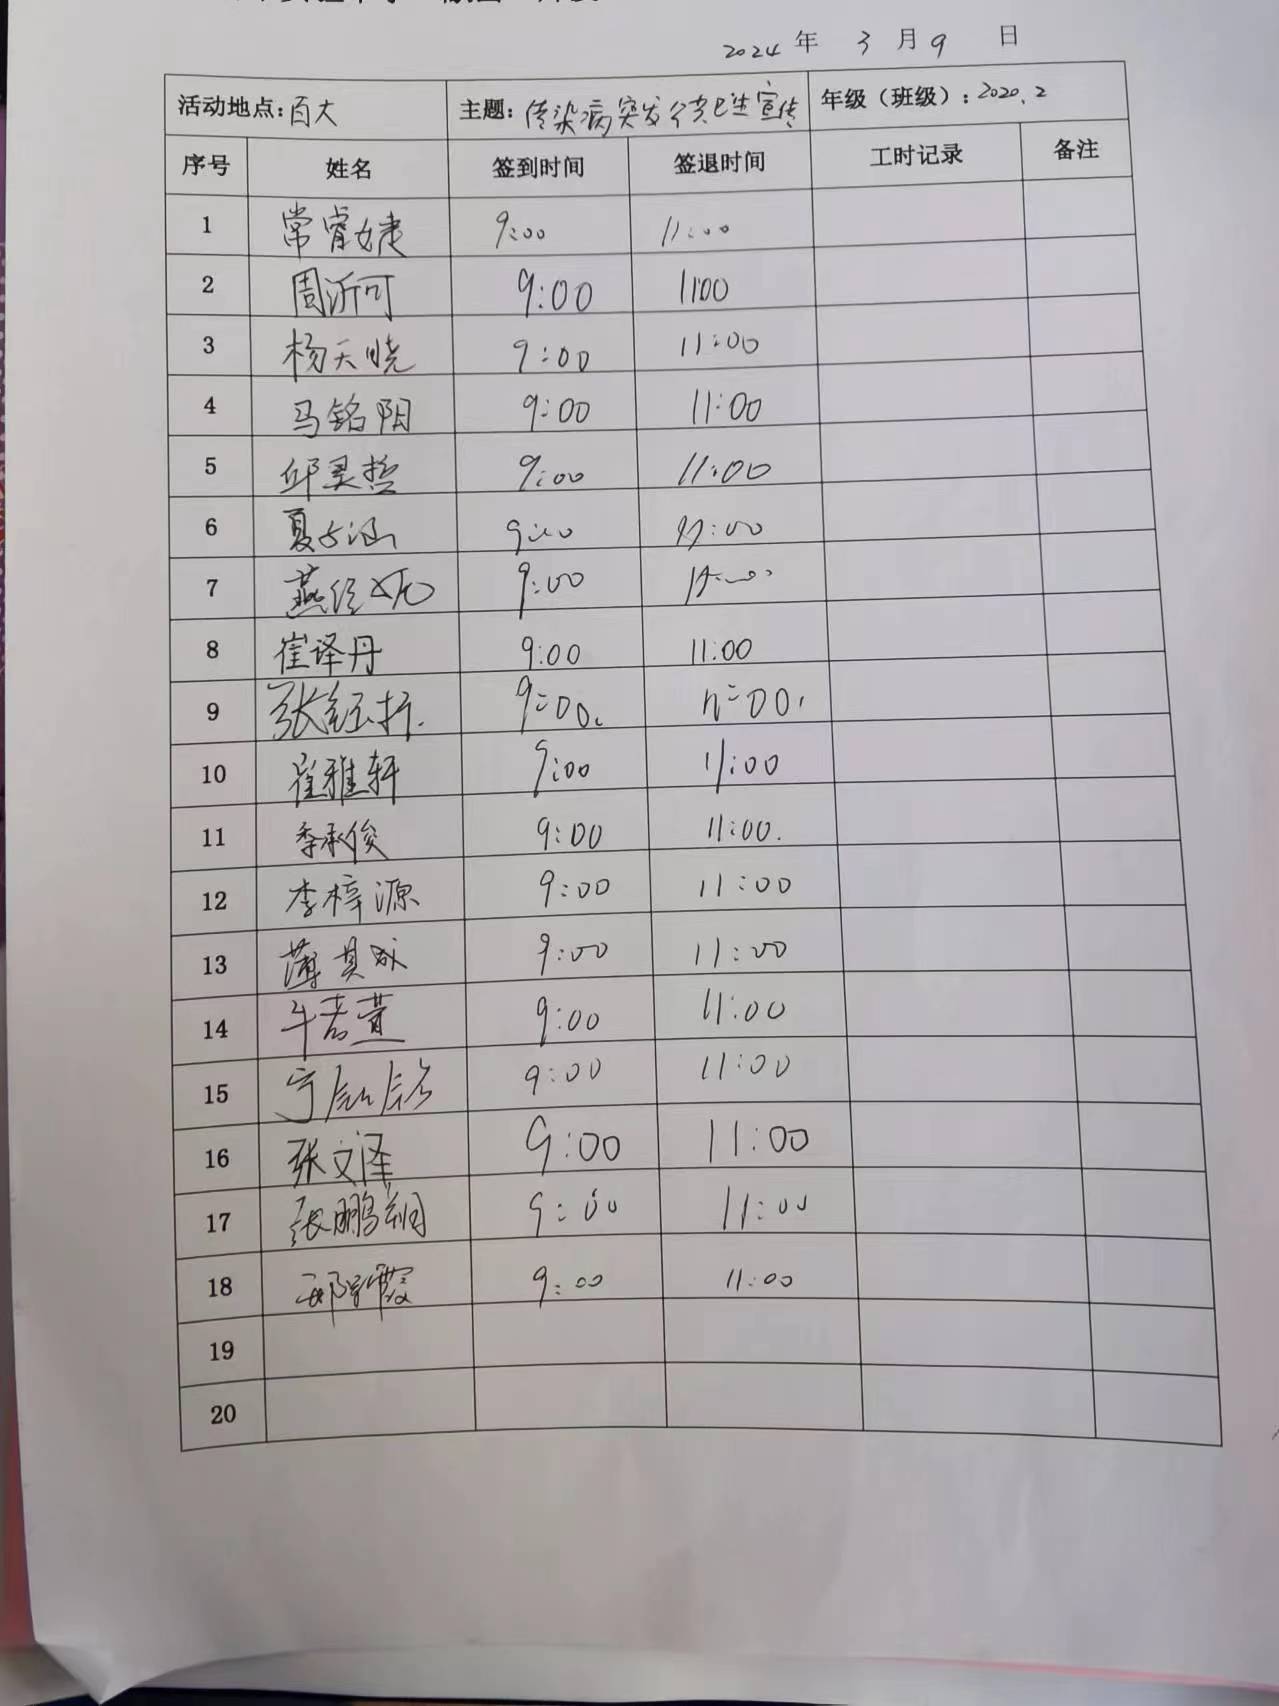 2024 年 3 月 9 日
活动地点: 百大 主题: 传染病突发公共卫生宣传 年级（班级）: 2020.2
序号 姓名 签到时间 签退时间 工时记录 备注
1 常睿婕 9:00 11:00
2 周沂可 9:00 1100
3 杨天晓 9:00 11:00
4 马铭阳 9:00 11:00
5 邱昊哲 9:00 11:00
6 夏 涵 9:00 11:00
7 燕 9:00
8 崔译丹 9:00 11:00
9 张 9:00. 11:00.
10 崔雅轩 9:00 11:00
11 季承俊 9:00 11:00.
12 李梓源 9:00 11:00
13 薄其成 9:00 11:00
14 牛若萱 9:00 11:00
15 宁 9:00 11:00
16 张文泽 9:00 11:00
17 张鹏翔 9:00 11:00
18 9:00 11:00
19
20